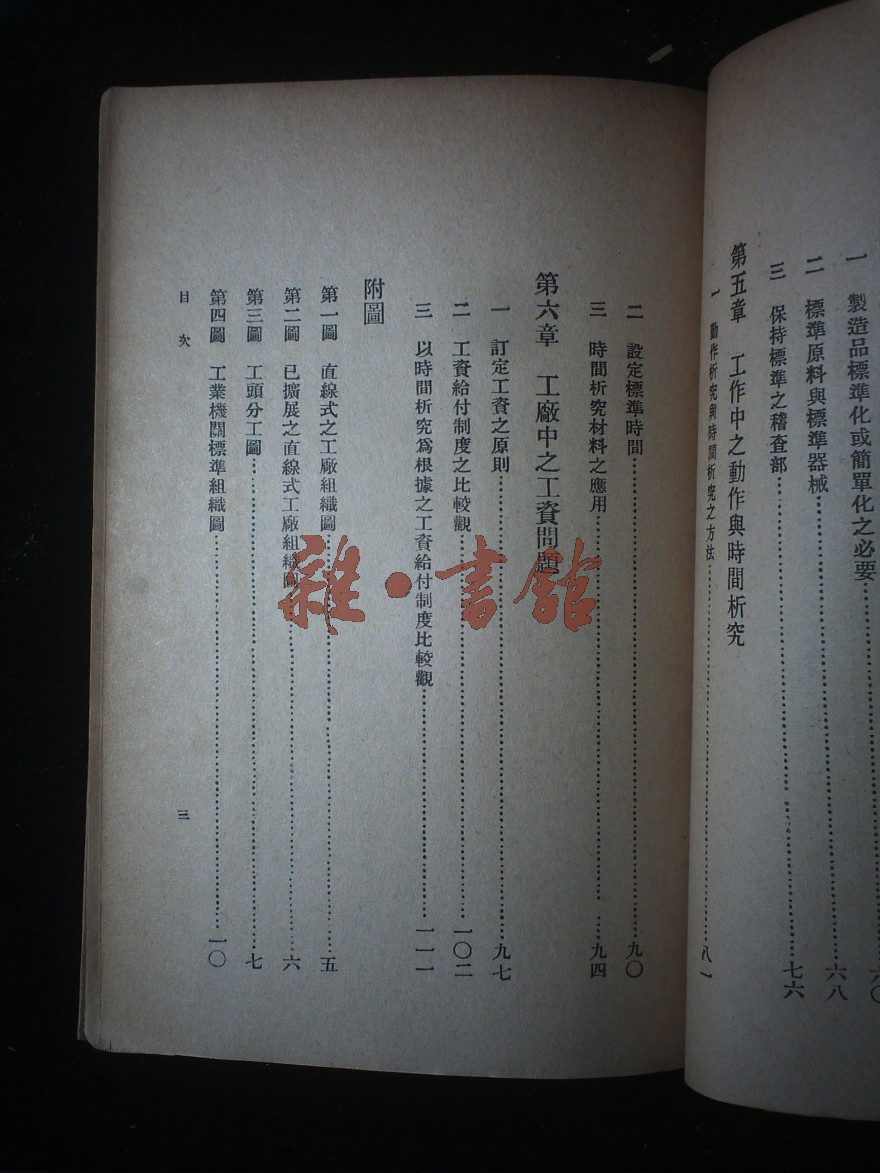 一 製造品標準化或簡單化之必要……六〇
二 標準原料與標準器械……六八
三 保持標準之稽查部……七六
第五章 工作中之動作與時間析究
一 動作析究與時間析究之方法……八一
二 設定標準時間……九〇
三 時間析究材料之應用……九四
第六章 工廠中之工資問題
一 訂定工資之原則……九七
二 工資給付制度之比較觀……一〇二
三 以時間析究爲根據之工資給付制度比較觀……一一一
附圖
第一圖 直線式之工廠組織圖……五
第二圖 已擴展之直線式工廠組織圖……六
第三圖 工頭分工圖……七
第四圖 工業機關標準組織圖……一〇
目次 三
雜·書館